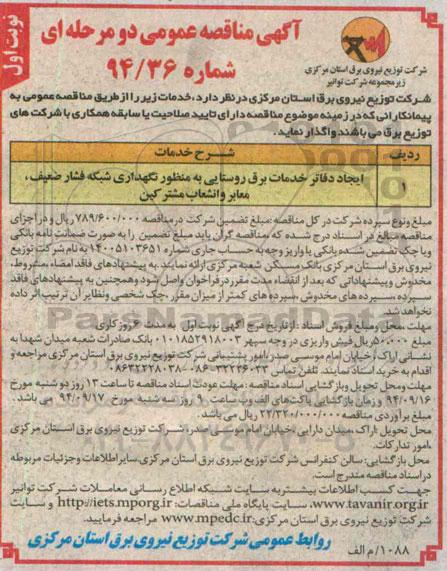 نوبت اول
آگهی مناقصه عمومی دو مرحله ای
شماره ۹۴/۳۶
شرکت توزیع نیروی برق استان مرکزی
زیرمجموعه شرکت توانیر
شرکت توزیع نیروی برق استان مرکزی در نظر دارد، خدمات زیر را از طریق مناقصه عمومی به
پیمانکارانی که در زمینه موضوع مناقصه دارای تایید صلاحیت یا سابقه همکاری با شرکت های
توزیع برق می باشند واگذار نماید.
ردیف شرح خدمات
۱ ایجاد دفاتر خدمات برق روستایی به منظور نگهداری شبکه فشار ضعیف،
معابر و انشعاب مشترکین
مبلغ ونوع سپرده شرکت در کل مناقصه: مبلغ تضمین شرکت در مناقصه ۷۸۹/۶۰۰/۰۰۰ ریال و در اجزای
مناقصه مبالغ در اسناد درج شده که مناقصه گران باید مبلغ تضمین را به صورت ضمانت نامه بانکی
ویا چک تضمین شده بانکی یا واریز وجه به حساب جاری شماره ۱۴۰۰۵۱۰۳۶۵۱ به نام شرکت توزیع
نیروی برق استان مرکزی بانک مسکن شعبه مرکزی ارائه نمایند. به پیشنهادهای فاقد امضاء، مشروط،
مخدوش وپیشنهاداتی که بعد از انقضاء مدت مقرر در فراخوان واصل شود وهمچنین به پیشنهادهای فاقد
سپرده، سپرده های مخدوش، سپرده های کمتر از میزان مقرر، چک شخصی ونظایر آن ترتیب اثر داده
نخواهد شد.
مهلت، محل ومبلغ فروش اسناد: از تاریخ درج آگهی نوبت اول به مدت ۶ روز کاری
مبلغ ۵۰۰۰۰۰ ریال فیش واریزی در وجه سپهر ۰۱۰۱۸۵۲۹۱۸۰۰۳ بانک صادرات شعبه میدان شهدا به
نشانی اراک، خیابان امام موسی صدر، امور پشتیبانی شرکت توزیع نیروی برق استان مرکزی مراجعه و
اقدام به خرید اسناد نمایند. تلفن تماس ۳۳۲۳۶۰۳۳-۰۸۶ ۰۸۶۳۲۲۲۸۰۳۸
مهلت ومحل تحویل وبازگشایی اسناد مناقصه: مهلت عودت اسناد مناقصه تا ساعت ۱۳ روز دو شنبه مورخ
۹۴/۰۹/۱۶ و زمان بازگشایی پاکت‌های الف و ب ساعت ۹ روز سه شنبه مورخ ۹۴/۰۹/۱۷ می باشد.
مبلغ برآوردی مناقصه ۲۲/۳۲۰/۰۰۰/۰۰۰ ریال می باشد.
محل تحویل: اراک، میدان دارایی، خیابان امام موسی صدر، شرکت توزیع نیروی برق استان مرکزی
،امور تدارکات.
محل بازگشایی: سالن کنفرانس شرکت توزیع نیروی برق استان مرکزی، سایر اطلاعات وجزئیات مربوطه
در اسناد مناقصه مندرج است.
جهت کسب اطلاعات بیشتر به سایت شبکه اطلاع رسانی معاملات شرکت توانیر
www.tavanir.org.ir، سایت پایگاه ملی مناقصات: http://iets.mporg.ir و سایت
شرکت توزیع نیروی برق استان مرکزی: www.mpedc.ir مراجعه فرمایید.
روابط عمومی شرکت توزیع نیروی برق استان مرکزی
۱۰۸۸/م الف
ParsNamadData